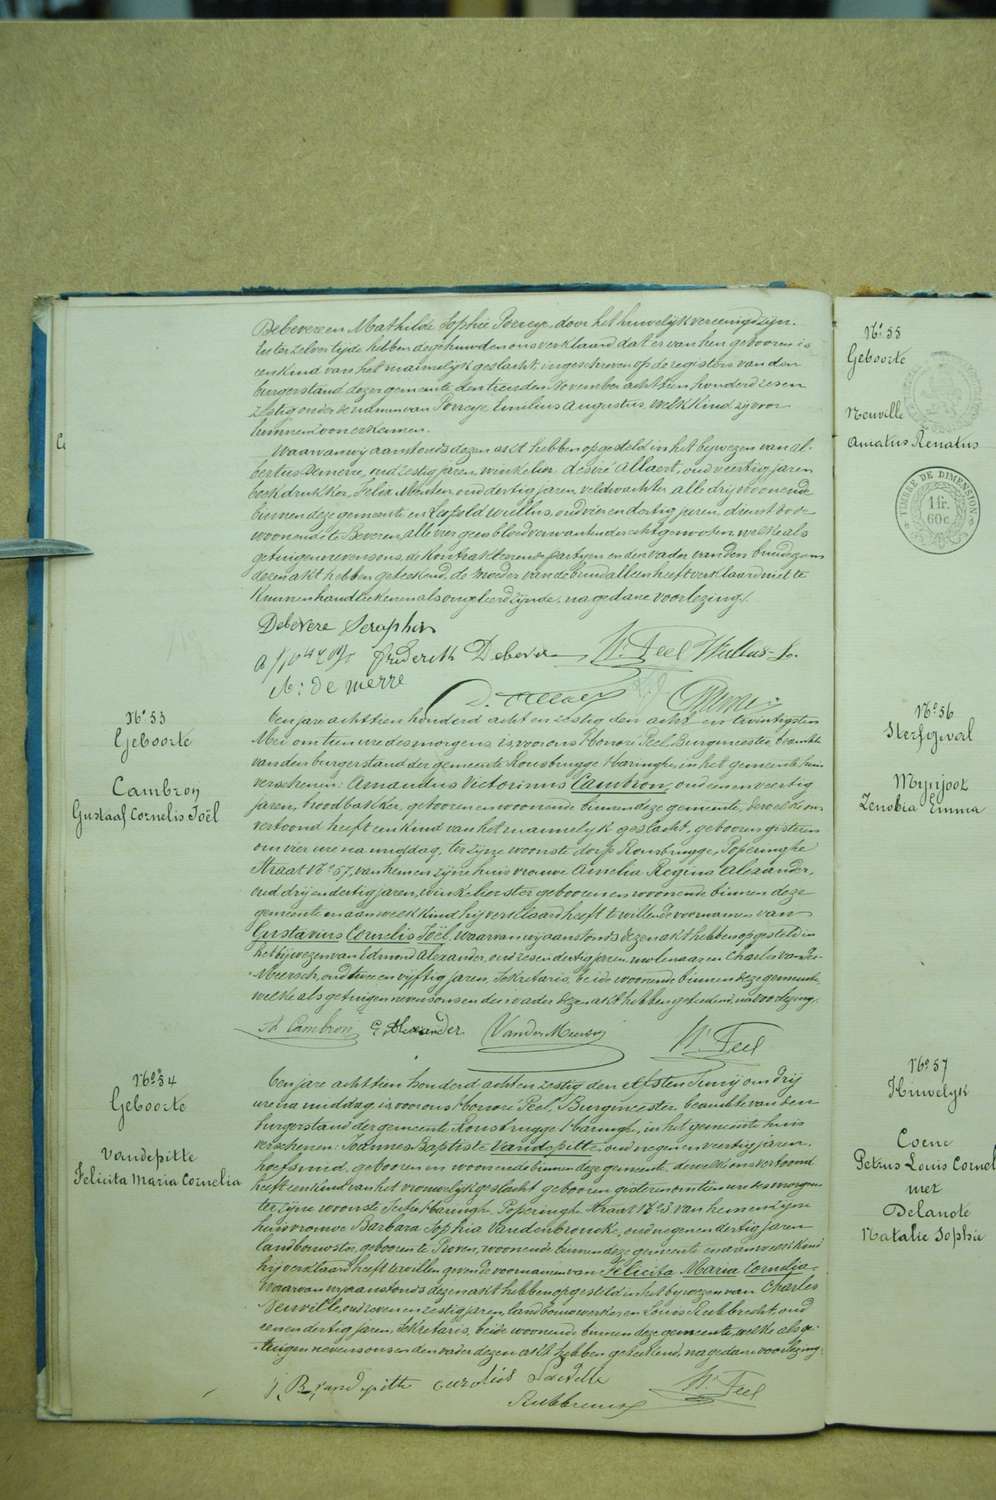 Debevere en Mathilde Sophie Porreye door het huwelijk vereenigd zijn.
Ten zelven tyde hebben de gehuwden ons verklaard dat er van hen geboren is
een kind van het mannelijk geslacht, ingeschreven op de registers van den
burgerstand dezer gemeente den November achttien honderd zes en
zestig onder de namen van Porreye Emilius Augustus, welk kind zy voor
hunnen zoon erkennen.
Waarvan wij aanstonds dezen akt hebben opgesteld in het bijwezen van Al-
bertus Demerre, oud zestig jaren winkelier, Desiré Allaert, oud veertig jaren
boekdrukker, Felix oud dertig jaren, veldwachter, alle drij woonende
binnen deze gemeente en Leopold Willus, oud vier en dertig jaren, dienstbode
woonende te Beveren, alle vier geen bloedverwanten der echtgenooten, welke als
getuigen nevens ons, de kontrakterende partyen en den vader van den bruidegom
dezen akt hebben geteekend, de moeder van de bruid alleen heeft verklaard niet te
kunnen handteekenen als ongeleerd zynde, na gedane voorlezing.
Debevere Seraphin
frederik Debever H. Peel Willus
A: de merre
D. Allaert
N° 53
Geboorte
Cambron
Gustaaf Cornelis Joël
Ten jare achttien honderd acht en zestig den acht en twintigsten
Mei om tien ure des morgens, is voor ons Honoré Peel, Burgmeester, beambte
van den burgerstand der gemeente Rousbrugge Haringhe, in het gemeente huis
verschenen: Amandus Victorinus Cambron, oud een en veertig
jaren, broodbakker, geboren en woonende binnen deze gemeente, dewelke ons
vertoond heeft een kind van het mannelyk geslacht, geboren gisteren
om vier ure na middag, ter zijne woonste dorp Rousbrugge, Poperinghe
Straat N° 57, van hem en zijne huisvrouwe Amelia Regina Alexander,
oud drij en dertig jaren, winkelierster geboren en woonende binnen deze
gemeente en aan welk kind hij verklaard heeft te willen de voornamen van
Gustavus Cornelis Joël, waarvan wij aanstonds dezen akt hebben opgesteld in
het bijwezen van Edmond Alexander, oud zes en dertig jaren, molenaar, en Charles Vander-
Meersch, oud twee en vyftig jaren, Sekretaris, beide woonende binnen deze gemeente
welke als getuigen nevens ons en den vader dezen akt hebben geteekend, na voorlezing.
A. Cambron E. Alexander VanderMeersch H. Peel
N° 54
Geboorte
Vandepitte
Felicita Maria Cornelia
Ten jare achttien honderd acht en zestig den elfsten Junij om drij
ure na middag, is voor ons Honoré Peel, Burgmeester, beambte van den
burgerstand der gemeente Rousbrugge Haringhe, in het gemeente huis
verschenen: Joannes Baptiste Vandepitte, oud negen en veertig jaren,
hoefsmid, geboren en woonende binnen deze gemeente, dewelk ons vertoond
heeft een kind van het vrouwelijk geslacht geboren gisteren om tien ure des morgens
ter zyne woonste Sectie Haringhe, Poperinghe Straat N° 23 van hem en zijne
huisvrouwe Barbara Sophia Vandenbroucke, oud negen en dertig jaren
landbouwster, geboren te Proven, woonende binnen deze gemeente en aan welk kind
hij verklaard heeft te willen geven de voornamen van Felicita Maria Cornelia.
Waarvan wij aanstonds dezen akt hebben opgesteld in het bijwezen van Charles
Neuville, oud zeven en zestig jaren, landbouwwerker, en Louis Rubbrecht, oud
een en dertig jaren, Sekretaris, beide woonende binnen deze gemeente, welke als ge-
tuigen nevens ons en den vader dezen akt hebben geteekend, na gedane voorlezing.
J. B. Vandepitte H. Peel
N° 55
Geboorte
Neuville
Amatus Renatus
TIMBRE DE DIMENSION
1 fr.
60 c.
N° 56
Sterfgeval
Mynjoot
Zenobia Emma
N° 57
Huwelyk
Coene
Petrus Louis Cornel
met
Delanote
Natalie Sophie